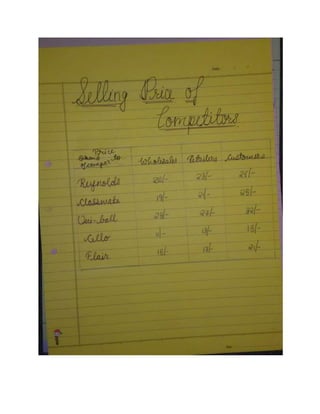 Selling Price of
Competitors
Price
Wholesaler Retailers Customers
Reynolds 20/- 23/- 25/-
Classmate 19/- 21/- 25/-
Uni-ball 25/- 27/- 32/-
Cello 13/- 15/-
Flair 15/- 17/- 21/-